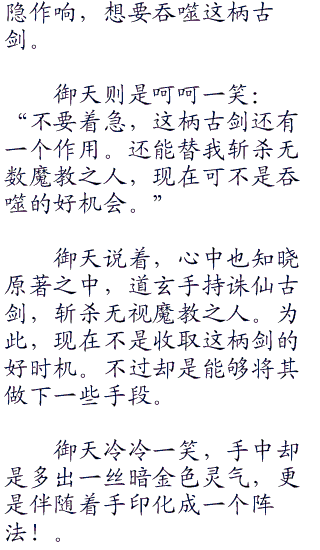 隐作响，想要吞噬这柄古
剑。
御天则是呵呵一笑：
“不要着急，这柄古剑还有
一个作用。还能替我斩杀无
数魔教之人，现在可不是吞
噬的好机会。”
御天说着，心中也知晓
原著之中，道玄手持诛仙古
剑，斩杀无视魔教之人。为
此，现在不是收取这柄剑的
好时机。不过却是能够将其
做下一些手段。
御天冷冷一笑，手中却
是多出一丝暗金色灵气，更
是伴随着手印化成一个阵
法！。